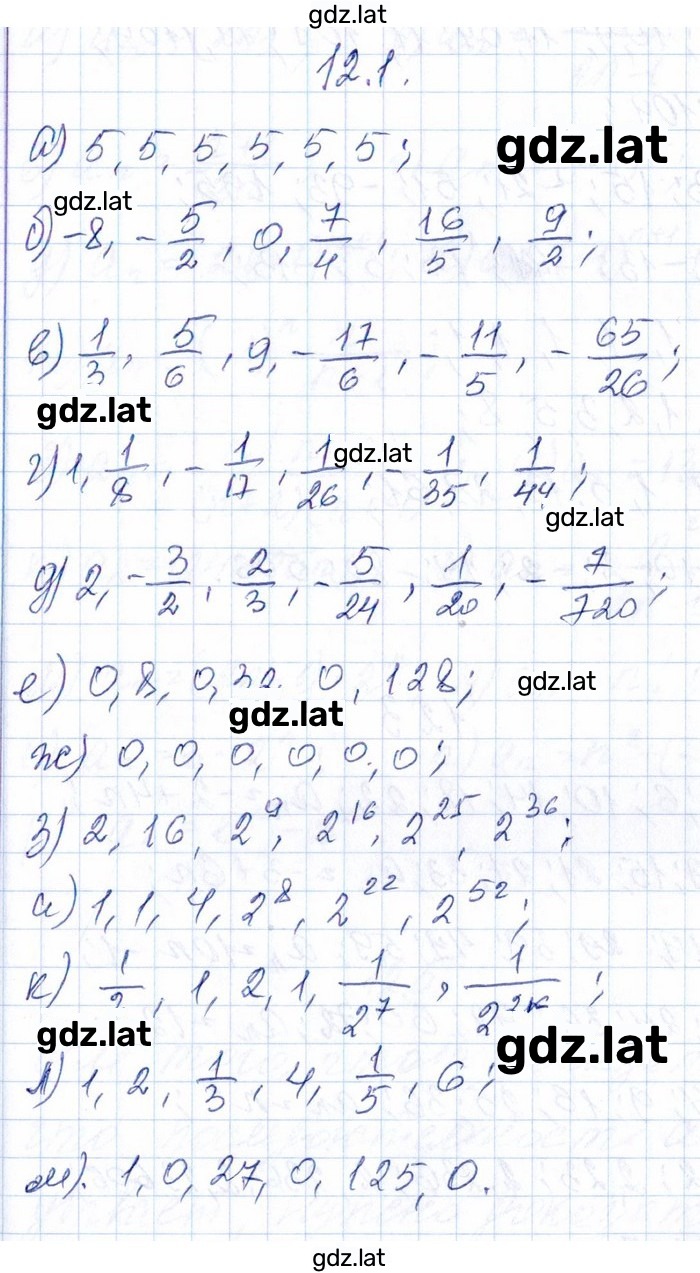 gdz.lat
12.1.
а) 5, 5, 5, 5, 5, 5; gdz.lat
gdz.lat
б) -8, -5/2, 0, 7/4, 16/5, 9/2;
в) 1/3, 5/6, 9, -17/6, -11/5, -65/26;
gdz.lat
г) 1, 1/8, -1/17, 1/26, -1/35, 1/44;
gdz.lat
gdz.lat
д) 2, -3/2, 2/3, -5/24, 1/20, -7/720;
е) 0, 8, 0, 32. 0, 128; gdz.lat
gdz.lat
ж) 0, 0, 0, 0, 0, 0;
з) 2, 16, 2⁹, 2¹⁶, 2²⁵, 2³⁶;
и) 1, 1, 4, 2⁸, 2²², 2⁵²;
к) 1/2, 1, 2, 1, 1/2⁷,
gdz.lat gdz.lat
л) 1, 2, 1/3, 4, 1/5, 6;
м). 1, 0, 27, 0, 125, 0.
gdz.lat